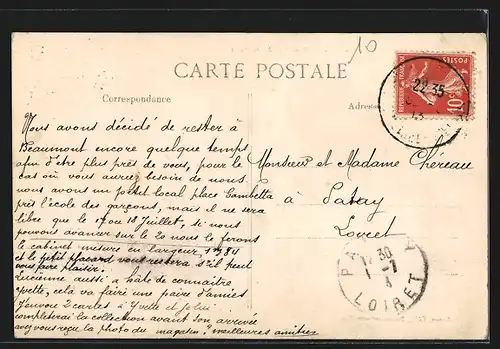 10
CARTE POSTALE
Correspondance
Adresse
RÉPUBLIQUE FRANÇAISE
POSTES
10
22 35
Nous avons décidé de rester à
Beaumont encore quelque temps
afin d'être plus près de vous, pour le
cas où vous auriez besoin de nous.
nous avons un petit local place Gambetta
près l'école des garçons, mais il ne sera
libre que le 17 ou 18 Juillet, si nous
pouvons avancer sur le 20 nous le ferons
le cabinet mesure en largeur 1m84
et le petit placard vous restera s'il peut
vous faire plaisir.
Lucienne aussi a hâte de connaitre
Yvette, cela va faire une paire d'amies
J'envoie 2 cartes à Yvette et
completerai la collection avant son arrivée
avez vous reçu la photo du magasin? meilleures amitiés
Monsieur et Madame Chereau
à Patay
Loiret
30
1-7
LOIRET